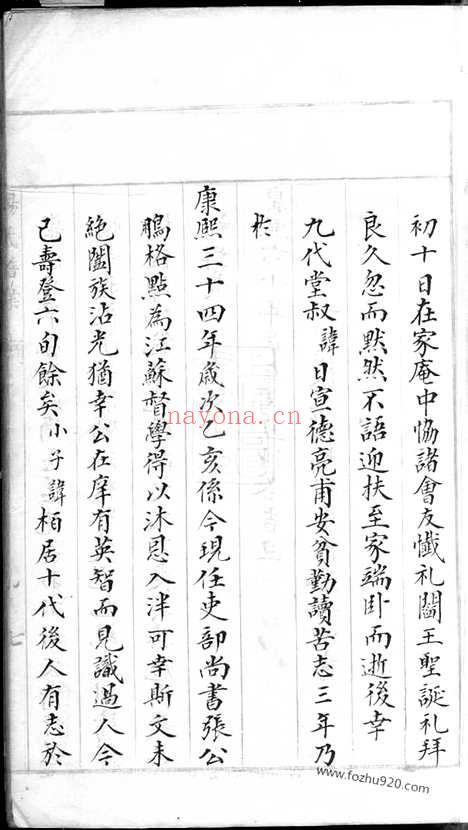 初十日在家庵中恊諸會友懺礼閻王聖誕礼拜
良久忽而黙然不語迎扶至家端卧而逝後幸
九代堂叔諱日宣德亮甫安貧勤讀苦志三年乃
於
康熙三十四年歲次乙亥係今現任吏部尚書張公
鵬格點為江蘇督學得以沐恩入泮可幸斯文未
絶闔族沾光猶幸公在庠有英智而見識過人今
已壽登六旬餘矣小子諱栢居十代後人有志於
nayona.cn
www.fozhu920.com